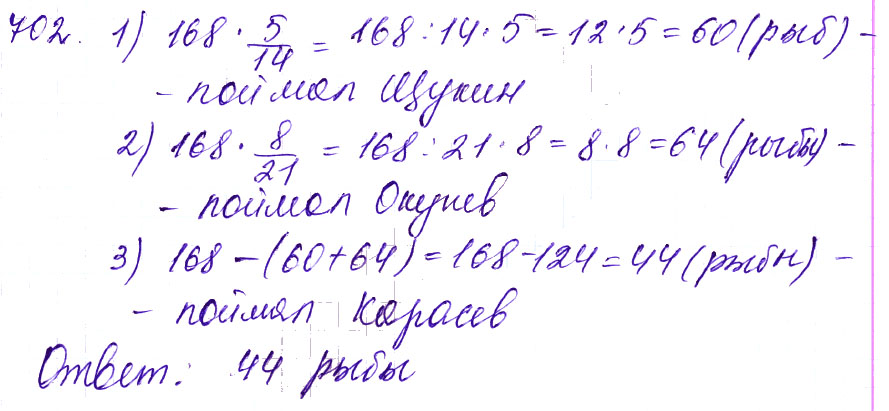 702. 1) 168 · 5/14 = 168 : 14 · 5 = 12 · 5 = 60 (рыб) –
– поймал Щукин
2) 168 · 8/21 = 168 : 21 · 8 = 8 · 8 = 64 (рыбы) –
– поймал Окунев
3) 168 – (60 + 64) = 168 – 124 = 44 (рыбы) –
– поймал Карасев
Ответ: 44 рыбы